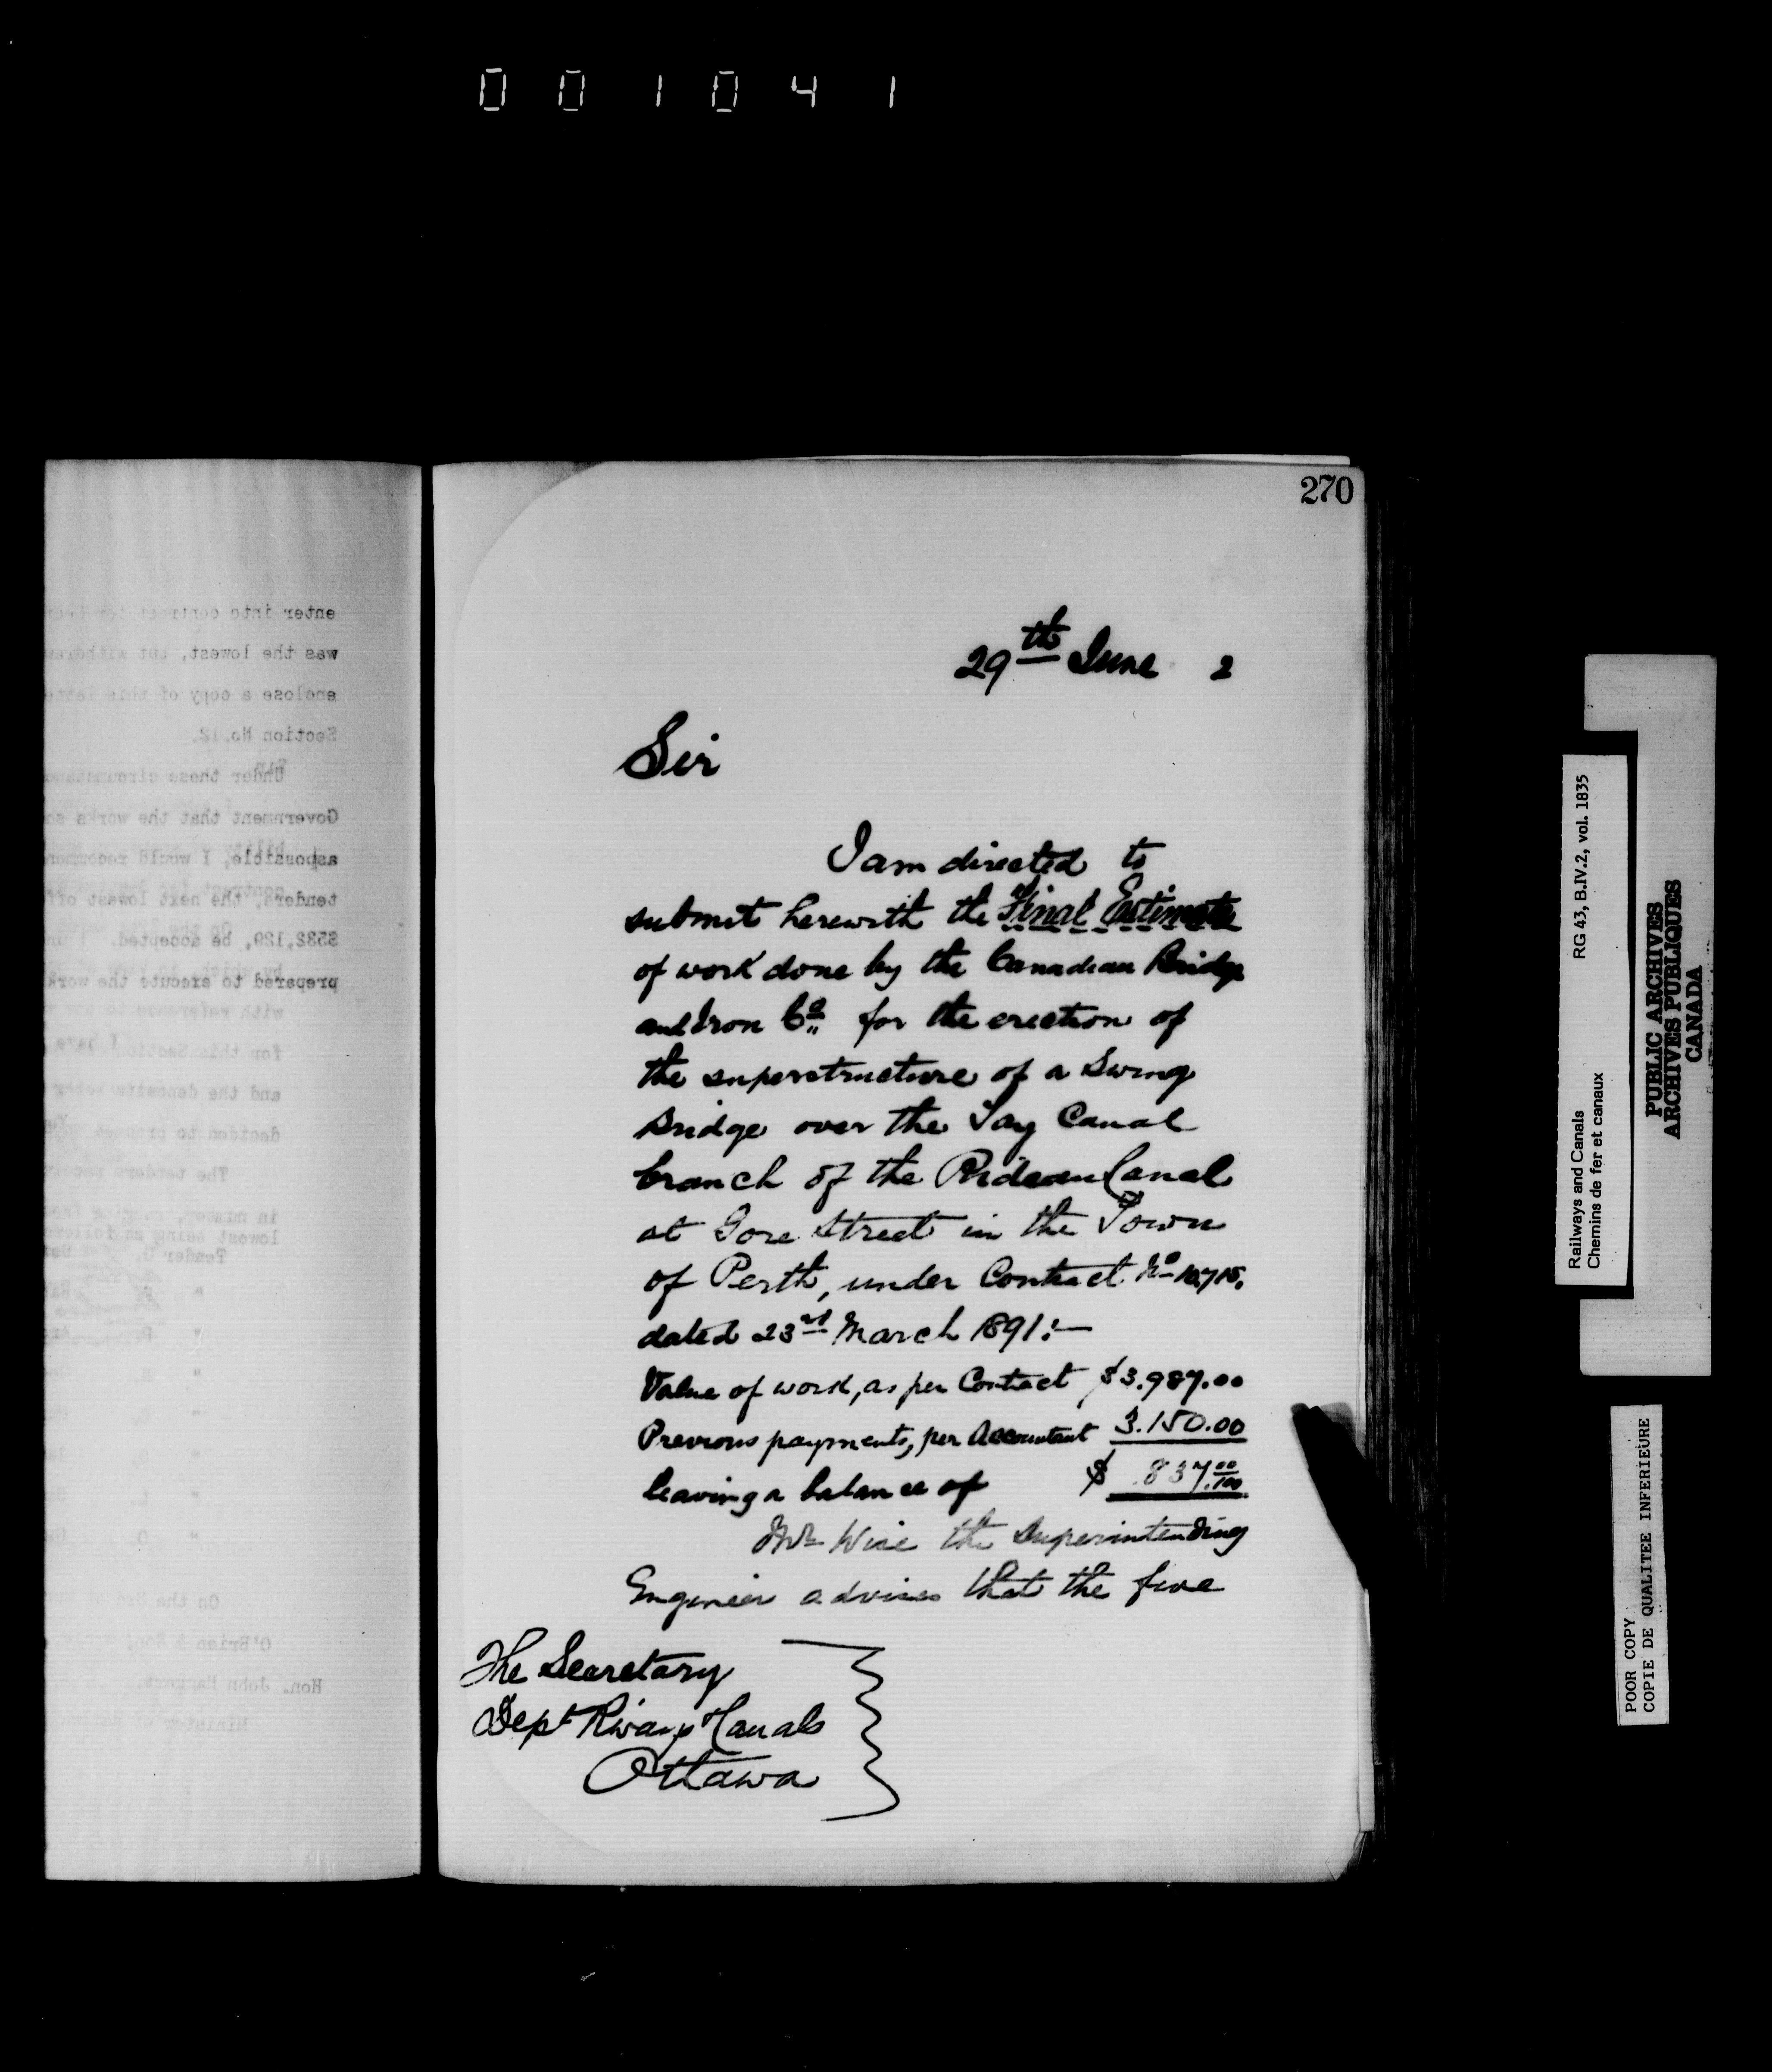 001041
270
29th June 2
Sir
I am directed to
submit herewith the Final Estimate
of work done by the Canadian Bridge
and Iron Co. for the erection of
the superstructure of a Swing
Bridge over the Tay Canal
branch of the Rideau Canal
at Gore Street in the Town
of Perth, under Contract No 10,715.
dated 23rd March 1891:—
Value of work, as per Contract $3.987.00
Previous payments, per Accountant 3.150.00
leaving a balance of $ 837.00/100
Mr Wise the Superintending
Engineer advises that the five
The Secretary
Dept Rways & Canals
Ottawa
enter into contract for
was the lowest, but withdrew
enclose a copy of this letter
Section No.12.
Under these circumstances
Government that the works
as possible, I would recommend
tender, the next lowest
$532,129, be accepted.
prepared to execute the work
with reference to
for this Section
I have
and the deposits being
decided to
The tenders
in number
lowest being as follows
Tender G.
On the 3rd of
O'Brien & Son,
Hon. John Haggart,
Minister of
Railways and Canals RG 43, B.IV.2, vol. 1835
Chemins de fer et canaux
PUBLIC ARCHIVES
ARCHIVES PUBLIQUES
CANADA
POOR COPY
COPIE DE QUALITEE INFERIEURE